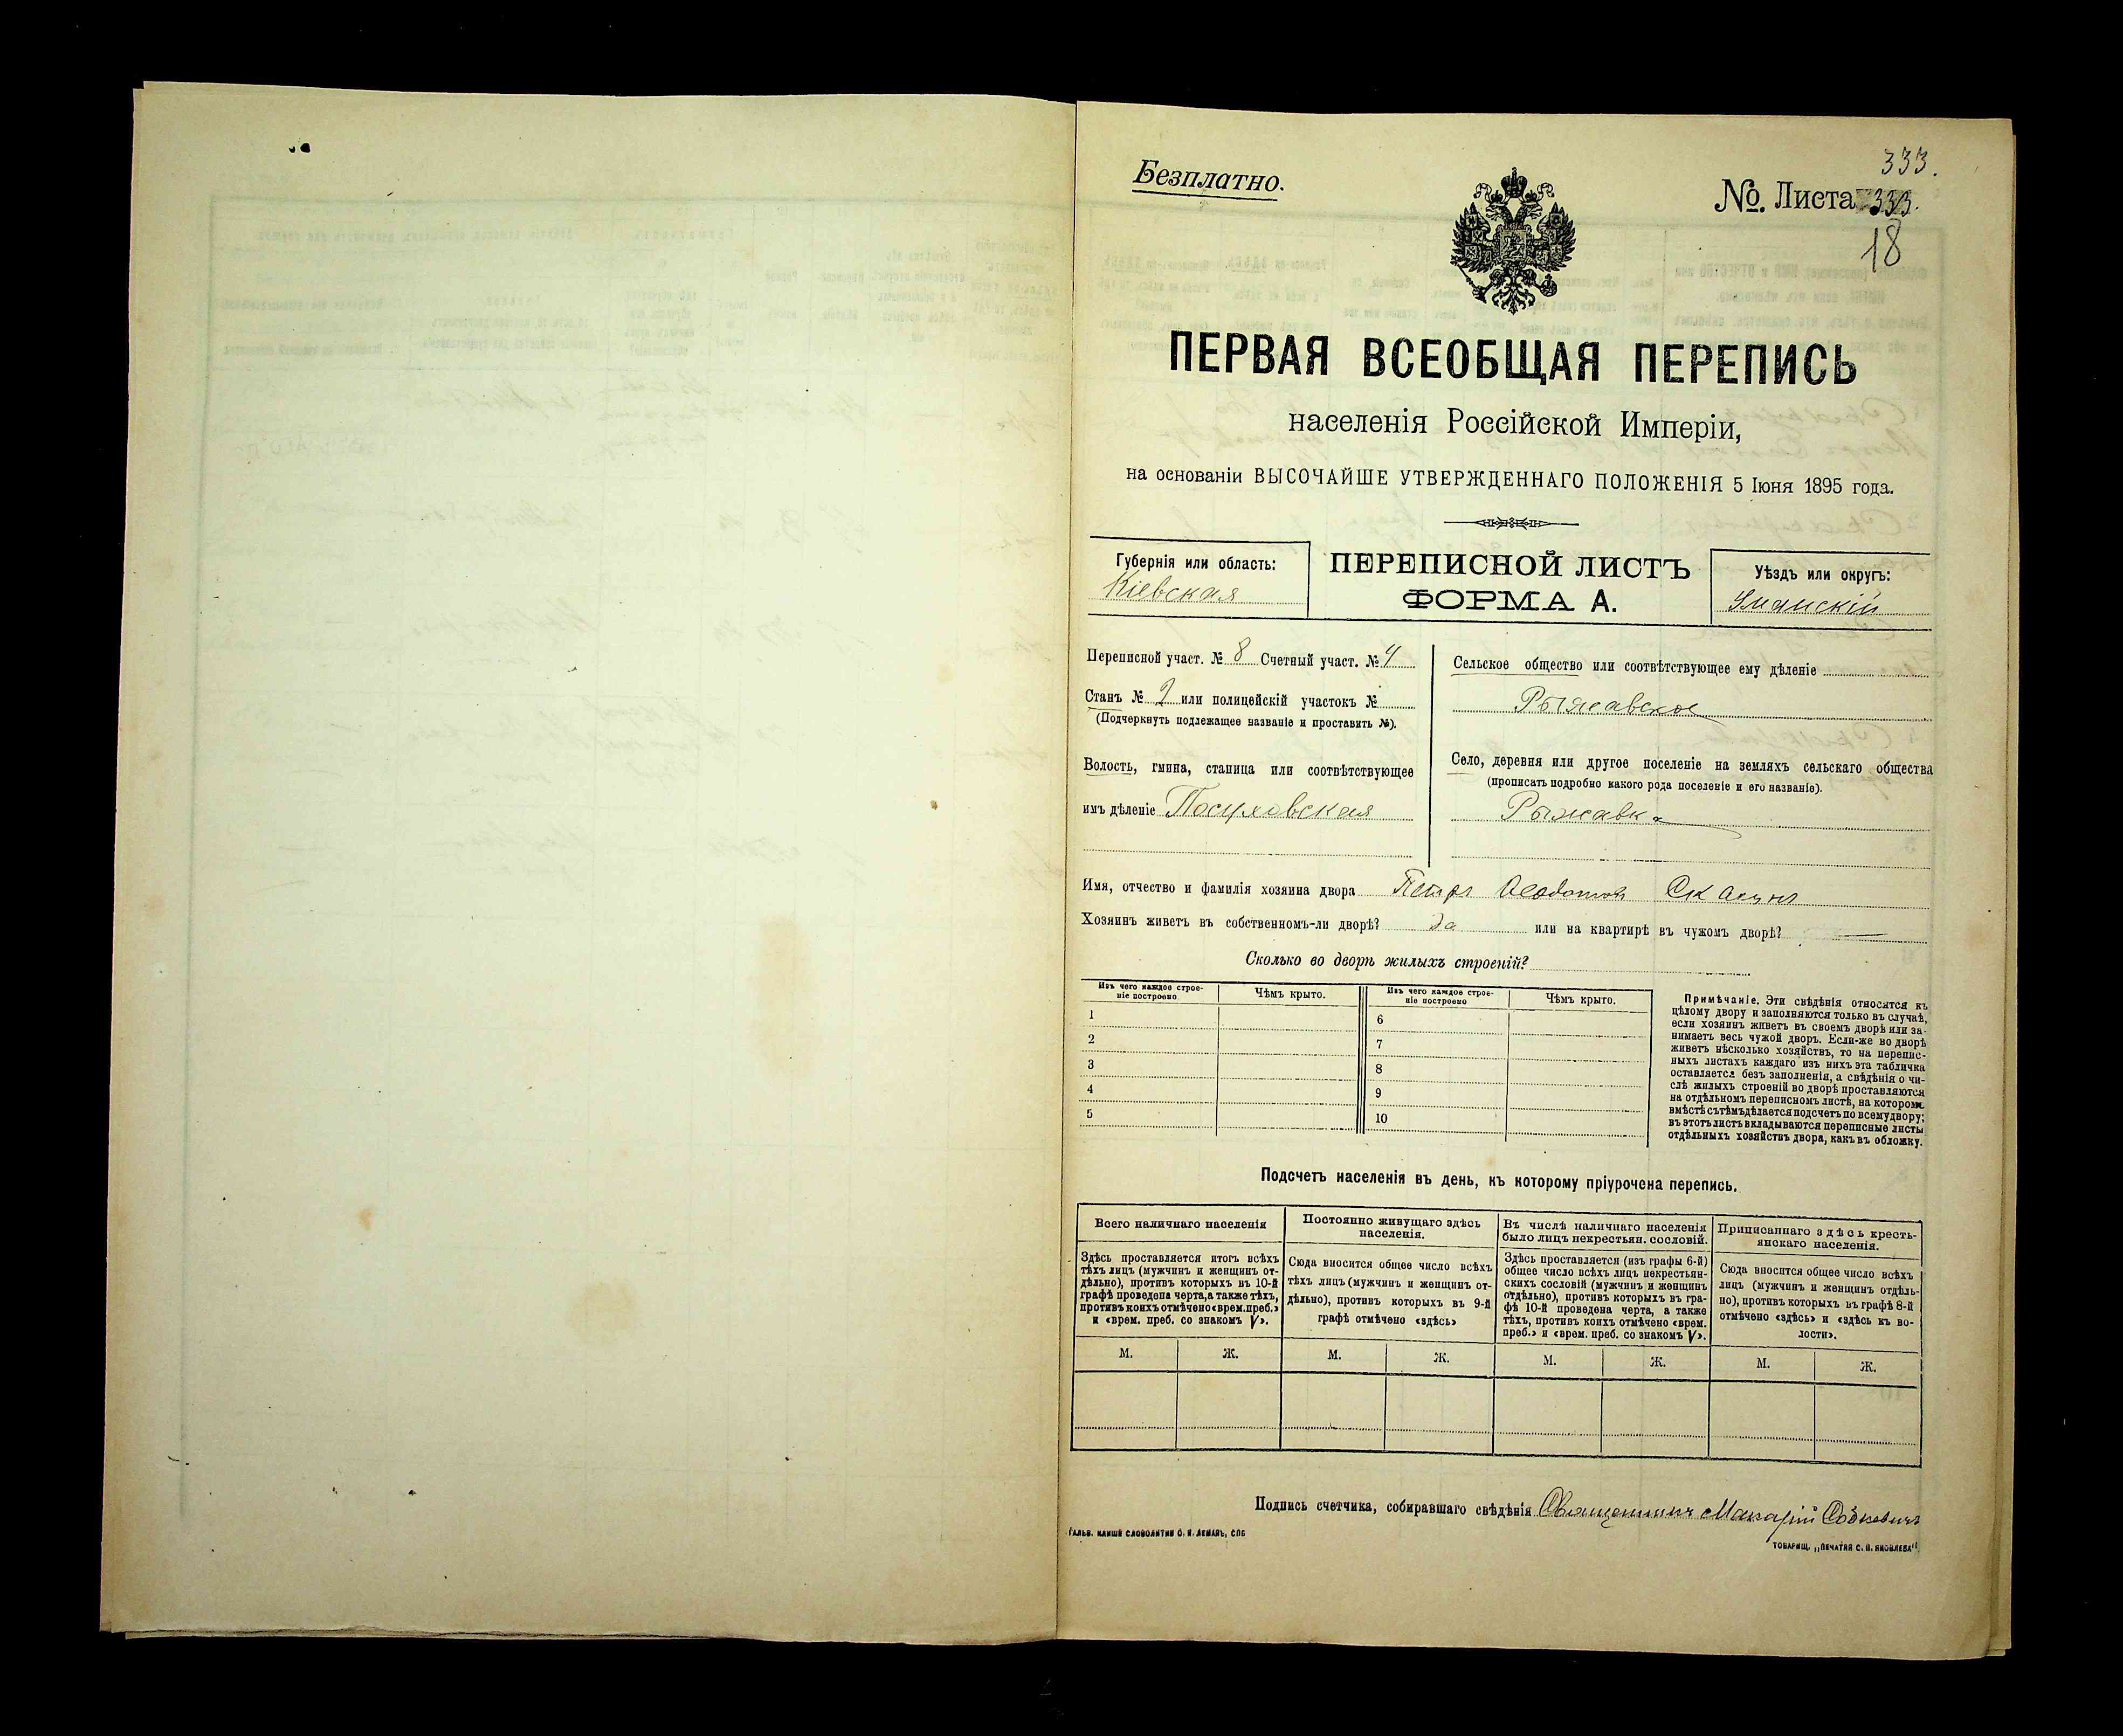 333.
Безплатно.
№. Листа 333.
18
ПЕРВАЯ ВСЕОБЩАЯ ПЕРЕПИСЬ
населенія Россійской Имперіи,
на основаніи ВЫСОЧАЙШЕ УТВЕРЖДЕННАГО ПОЛОЖЕНІЯ 5 Іюня 1895 года.
Губернія или область:
Кіевская
ПЕРЕПИСНОЙ ЛИСТЪ
ФОРМА А.
Уѣздъ или округъ:
Уманскій
Переписной участ. № 8 Счетный участ. № 4
Станъ № 2 или полицейскій участокъ №
(Подчеркнуть подлежащее названіе и проставить №).
Волость, гмина, станица или соотвѣтствующее
имъ дѣленіе Посуховская
Сельское общество или соотвѣтствующее ему дѣленіе
Рыжавское
Село, деревня или другое поселеніе на земляхъ сельскаго общества
(прописать подробно какого рода поселеніе и его названіе).
Рыжавка
Имя, отчество и фамилія хозяина двора Петръ Ѳеодотовъ
Хозяинъ живетъ въ собственномъ-ли дворѣ? да или на квартирѣ въ чужомъ дворѣ? —
Сколько во дворѣ жилыхъ строеній?
Изъ чего каждое строе-
ніе построено
Чѣмъ крыто.
Изъ чего каждое строе-
ніе построено
Чѣмъ крыто.
1
2
3
4
5
6
7
8
9
10
Примѣчаніе. Эти свѣдѣнія относятся къ
цѣлому двору и заполняются только въ случаѣ,
если хозяинъ живетъ въ своемъ дворѣ или за-
нимаетъ весь чужой дворъ. Если-же во дворѣ
живетъ нѣсколько хозяйствъ, то на перепис-
ныхъ листахъ каждаго изъ нихъ эта табличка
оставляется безъ заполненія, а свѣдѣнія о чи-
слѣ жилыхъ строеній во дворѣ проставляются
на отдѣльномъ переписномъ листѣ, на которомъ
вмѣстѣ съ тѣмъ дѣлается подсчетъ по всему двору;
въ этотъ листъ вкладываются переписные листы
отдѣльныхъ хозяйствъ двора, какъ въ обложку.
Подсчетъ населенія въ день, къ которому пріурочена перепись.
Всего наличнаго населенія
Здѣсь проставляется итогъ всѣхъ
тѣхъ лицъ (мужчинъ и женщинъ от-
дѣльно), противъ которыхъ въ 10-й
графѣ проведена черта, а также тѣхъ,
противъ коихъ отмѣчено «врем. преб.»
и «врем. преб. со знакомъ V».
Постоянно живущаго здѣсь
населенія.
Сюда вносится общее число всѣхъ
тѣхъ лицъ (мужчинъ и женщинъ от-
дѣльно), противъ которыхъ въ 9-й
графѣ отмѣчено «здѣсь»
Въ числѣ наличнаго населенія
было лицъ некрестьян. сословій.
Здѣсь проставляется (изъ графы 6-й)
общее число всѣхъ лицъ некрестьян-
скихъ сословій (мужчинъ и женщинъ
отдѣльно), противъ которыхъ въ гра-
фѣ 10-й проведена черта, а также
тѣхъ, противъ коихъ отмѣчено «врем.
преб.» и «врем. преб. со знакомъ V».
Приписаннаго здѣсь кресть-
янскаго населенія.
Сюда вносится общее число всѣхъ
лицъ (мужчинъ и женщинъ отдѣль-
но), противъ которыхъ въ графѣ 8-й
отмѣчено «здѣсь» и «здѣсь къ во-
лости».
М. Ж. М. Ж. М. Ж. М. Ж.
Подпись счетчика, собиравшаго свѣдѣнія Священникъ Макарій
ГАЛЬВ. КЛИШЕ СЛОВОЛИТНИ О. И. ЛЕМАНЪ, СПБ
ТОВАРИЩ. „ПЕЧАТНЯ С. П. ЯКОВЛЕВА"